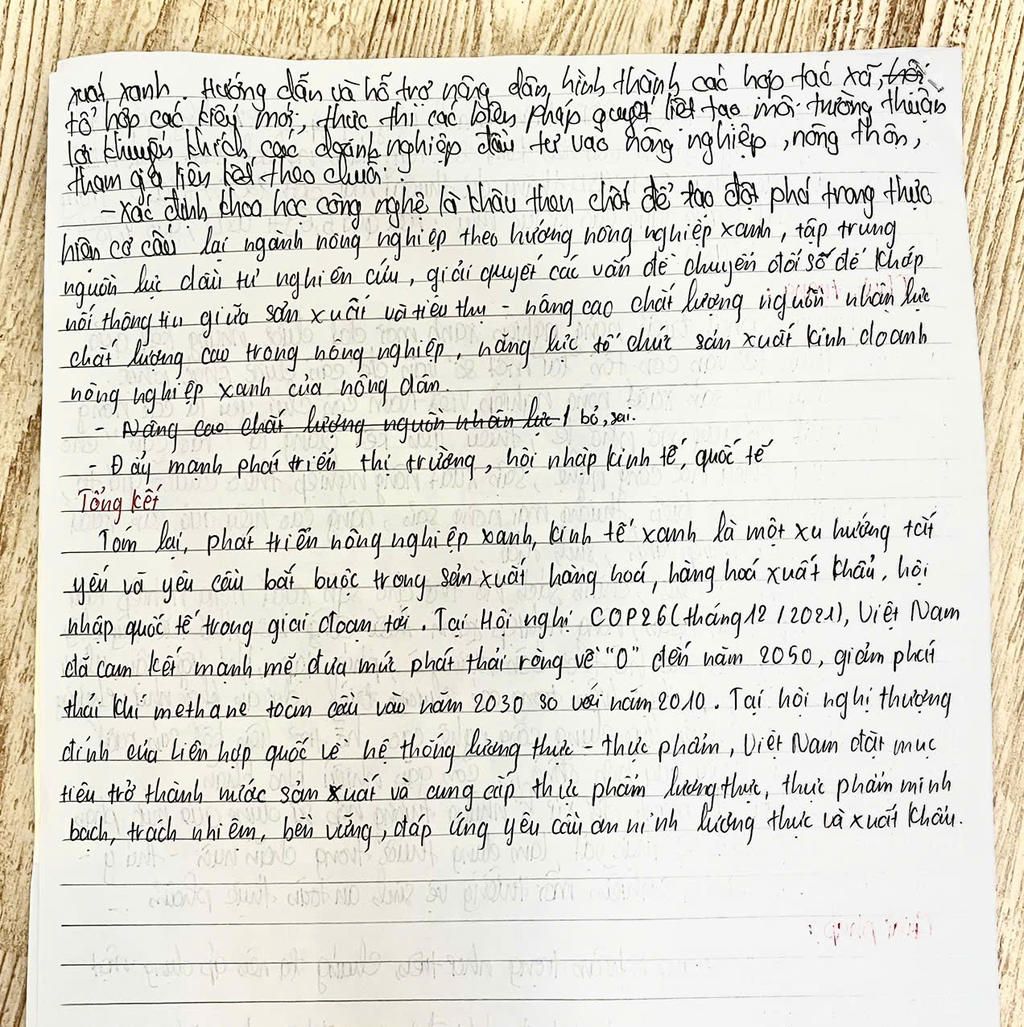 xuất xanh. Hướng dẫn và hỗ trợ nông dân, hình thành các hợp tác xã,
tổ hợp các kiểu mới, thực thi các biện pháp quyết liệt tạo môi trường thuận
lợi khuyến khích các doanh nghiệp đầu tư vào nông nghiệp, nông thôn,
tham gia liên kết theo chuỗi.
- Xác định khoa học công nghệ là khâu then chốt để tạo đột phá trong thực
hiện cơ cấu lại ngành nông nghiệp theo hướng nông nghiệp xanh, tập trung
nguồn lực đầu tư nghiên cứu, giải quyết các vấn đề chuyển đổi số để khớp
nối thông tin giữa sản xuất và tiêu thụ - nâng cao chất lượng nguồn nhân lực
chất lượng cao trong nông nghiệp, năng lực tổ chức sản xuất kinh doanh
nông nghiệp xanh của nông dân.
- Nâng cao chất lượng nguồn nhân lực / bỏ, sai.
- Đẩy mạnh phát triển thị trường, hội nhập kinh tế, quốc tế
Tổng kết
Tóm lại, phát triển nông nghiệp xanh, kinh tế xanh là một xu hướng tất
yếu và yêu cầu bắt buộc trong sản xuất hàng hoá, hàng hoá xuất khẩu, hội
nhập quốc tế trong giai đoạn tới. Tại Hội nghị COP26 (tháng 12 / 2021), Việt Nam
đã cam kết mạnh mẽ đưa mức phát thải ròng về "0" đến năm 2050, giảm phát
thải khí methane toàn cầu vào năm 2030 so với năm 2010. Tại hội nghị thượng
đỉnh của liên hợp quốc về hệ thống lương thực - thực phẩm, Việt Nam đặt mục
tiêu trở thành nước sản xuất và cung cấp thực phẩm lương thực, thực phẩm minh
bạch, trách nhiệm, bền vững, đáp ứng yêu cầu an ninh lương thực và xuất khẩu.